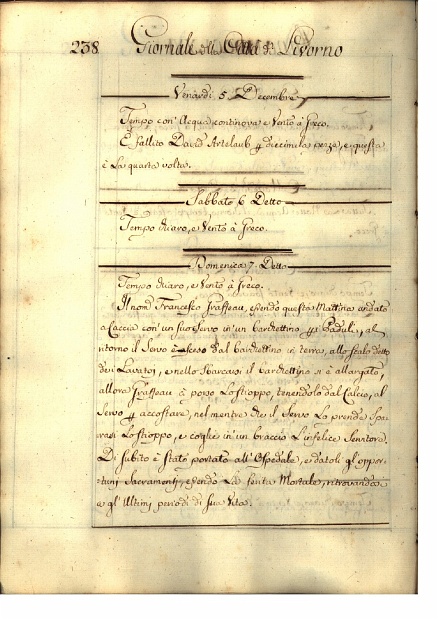 238 Giornale della Città di Livorno
Venardi 5. Decembre
Tempo con' Acqua continova e Vento à Greco.
È fallito David Artelaub p diecimila pezza, e questa
è La quarta volta.
Sabbato 6 Detto
Tempo chiaro, e Vento à Greco.
Domenica 7. Detto
Tempo chiaro, e Vento à Greco.
Il nom.º Francesco Graffeau, essendo questa Mattina andato
a Caccia con' un suo Servo in' un barchettino p i Paduli, al
ritorno il Servo è sceso dal barchettino in terra, allo scalo detto
dei Lavatoj, e nello sbarcarsi il barchettino si è allargato
allora Graffeau à porso Lo stioppo, tenendolo dal Calcio, al
Servo p accostare, nel mentre che il Servo Lo prende spa-
rasi Lo stioppo, e coglie in' un braccio L'infelice Servitore.
Di subito è stato portato all' Ospedale, e datoli gl' oppor-
tuni Sacramenti, essendo La ferita Mortale, ritrovandosi
a gl' Ultimi periodi di sua Vita.